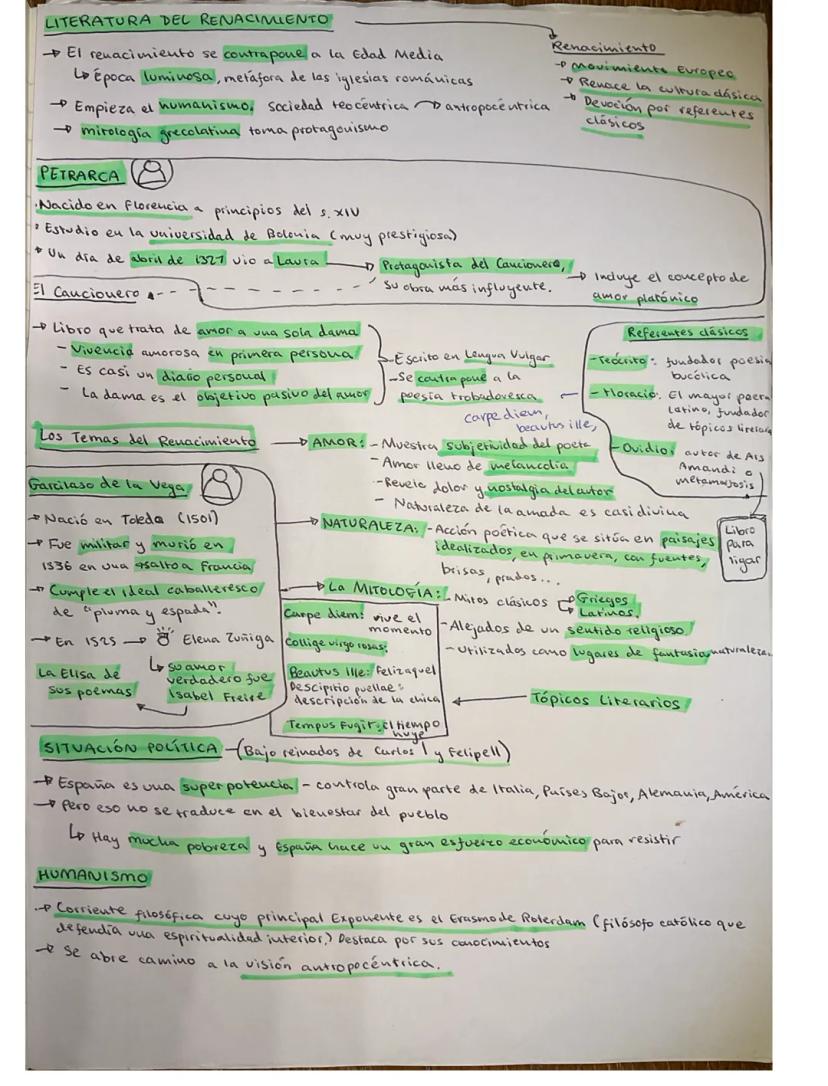 LITERATURA DEL RENACIMIENTO
→ El renacimiento se contrapone a la Edad Media
↳ Época luminosa, metáfora de las iglesias románicas
→ Empieza el humanismo, sociedad teocéntrica → antropocéntrica
→ mitología grecolatina toma protagonismo
Renacimiento
→ Movimiento Europeo
→ Renace la cultura clásica
→ Devoción por referentes
clásicos
PETRARCA
· Nacido en Florencia a principios del s. XIV
· Estudio en la universidad de Bolonia (muy prestigiosa)
· Un día de abril de 1327 vio a Laura → Protagonista del Cancionero,
su obra más influyente. → Incluye el concepto de
amor platónico
El Cancionero
→ Libro que trata de amor a una sola dama
- Vivencia amorosa en primera persona
- Es casi un diario personal
- La dama es el objetivo pasivo del amor
- Escrito en Lengua Vulgar
- Se contrapone a la
poesía trobadoresca
carpe diem,
beatus ille,
Referentes clásicos
- Teócrito: fundador poesía
bucólica
- Horacio: El mayor poeta
latino, fundador
de tópicos literarios
- Ovidio: autor de Ars
Amandi o
metamorfosis
Libro
para
ligar
Los Temas del Renacimiento
→ AMOR: - Muestra subjetividad del poeta
- Amor lleno de melancolía
- Revele dolor y nostalgia del autor
- Naturaleza de la amada es casi divina
→ NATURALEZA: - Acción poética que se sitúa en paisajes
idealizados, en primavera, con fuentes,
brisas, prados...
→ La MITOLOGÍA: - Mitos clásicos → Griegos
→ Latinos.
- Alejados de un sentido religioso
- Utilizados como lugares de fantasía, naturaleza.
Garcilaso de la Vega
→ Nació en Toledo (1501)
→ Fue militar y murió en
1536 en una asalto a Francia
→ Cumple el ideal caballeresco
de "pluma y espada".
→ En 1525 → Elena Zuñiga
↳ su amor
verdadero fue
Isabel Freire
La Elisa de
sus poemas
Carpe diem: vive el
momento
Collige virgo rosas:
Beautus Ille: Feliz aquel
Descipitio puellae:
descripción de la chica
Tempus Fugit: el tiempo
huye
← Tópicos Literarios
SITUACIÓN POLÍTICA - (Bajo reinados de Carlos I y Felipe II)
→ España es una superpotencia - controla gran parte de Italia, Países Bajos, Alemania, América
→ Pero eso no se traduce en el bienestar del pueblo
↳ Hay mucha pobreza y España hace un gran esfuerzo económico para resistir
HUMANISMO
→ Corriente filosófica cuyo principal Exponente es el Erasmo de Roterdam (filósofo católico que
defendía una espiritualidad interior,) Destaca por sus conocimientos
→ Se abre camino a la visión antropocéntrica.